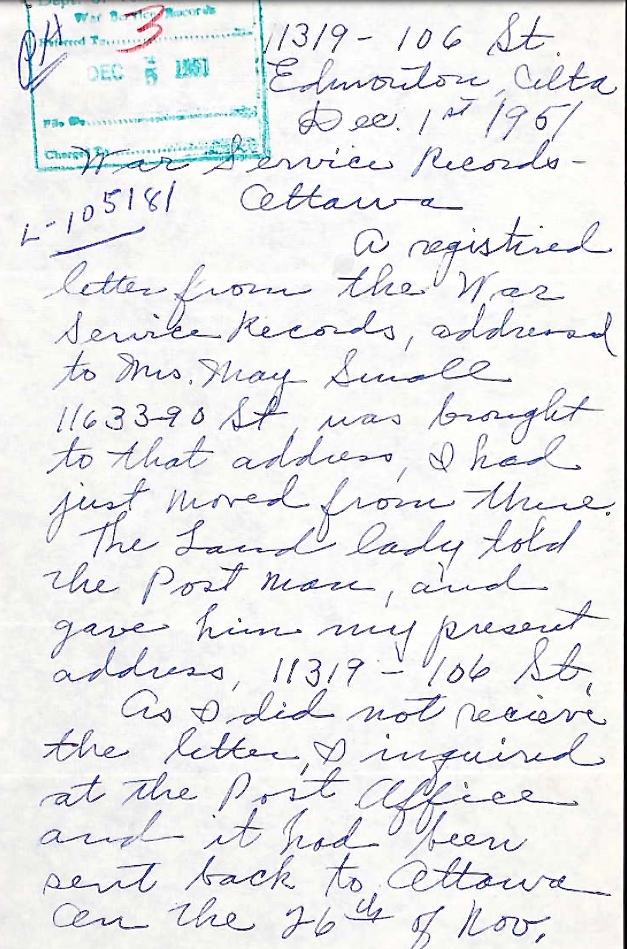 War Service Records
Referred To
3
PA
DEC 5 1951
File No.
Charged To
11319 - 106 St.
Edmonton, Alta
Dec. 1st 1951
War Service Records -
Ottawa
L-105181
A registired
letter from the War
Service Records, addressed
to Mrs. May Small
11633-90 St, was brought
to that address, I had
just moved from there.
The Land lady told
the Post man, and
gave him my present
address, 11319 - 106 St.
As I did not recieve
the letter, I inquired
at the Post Office
and it had been
sent back to Ottawa
on the 26th of Nov.